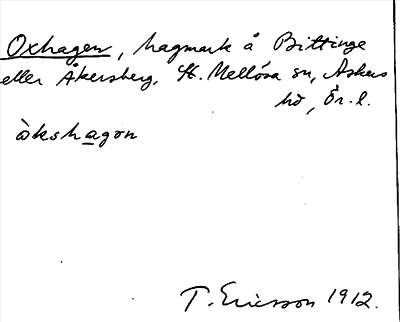 Oxhagen, hagmark å Bittinge
eller Åkersberg, St. Mellösa sn, Askers
hd, Ör. l.
òkshagon
T. Ericsson 1912.